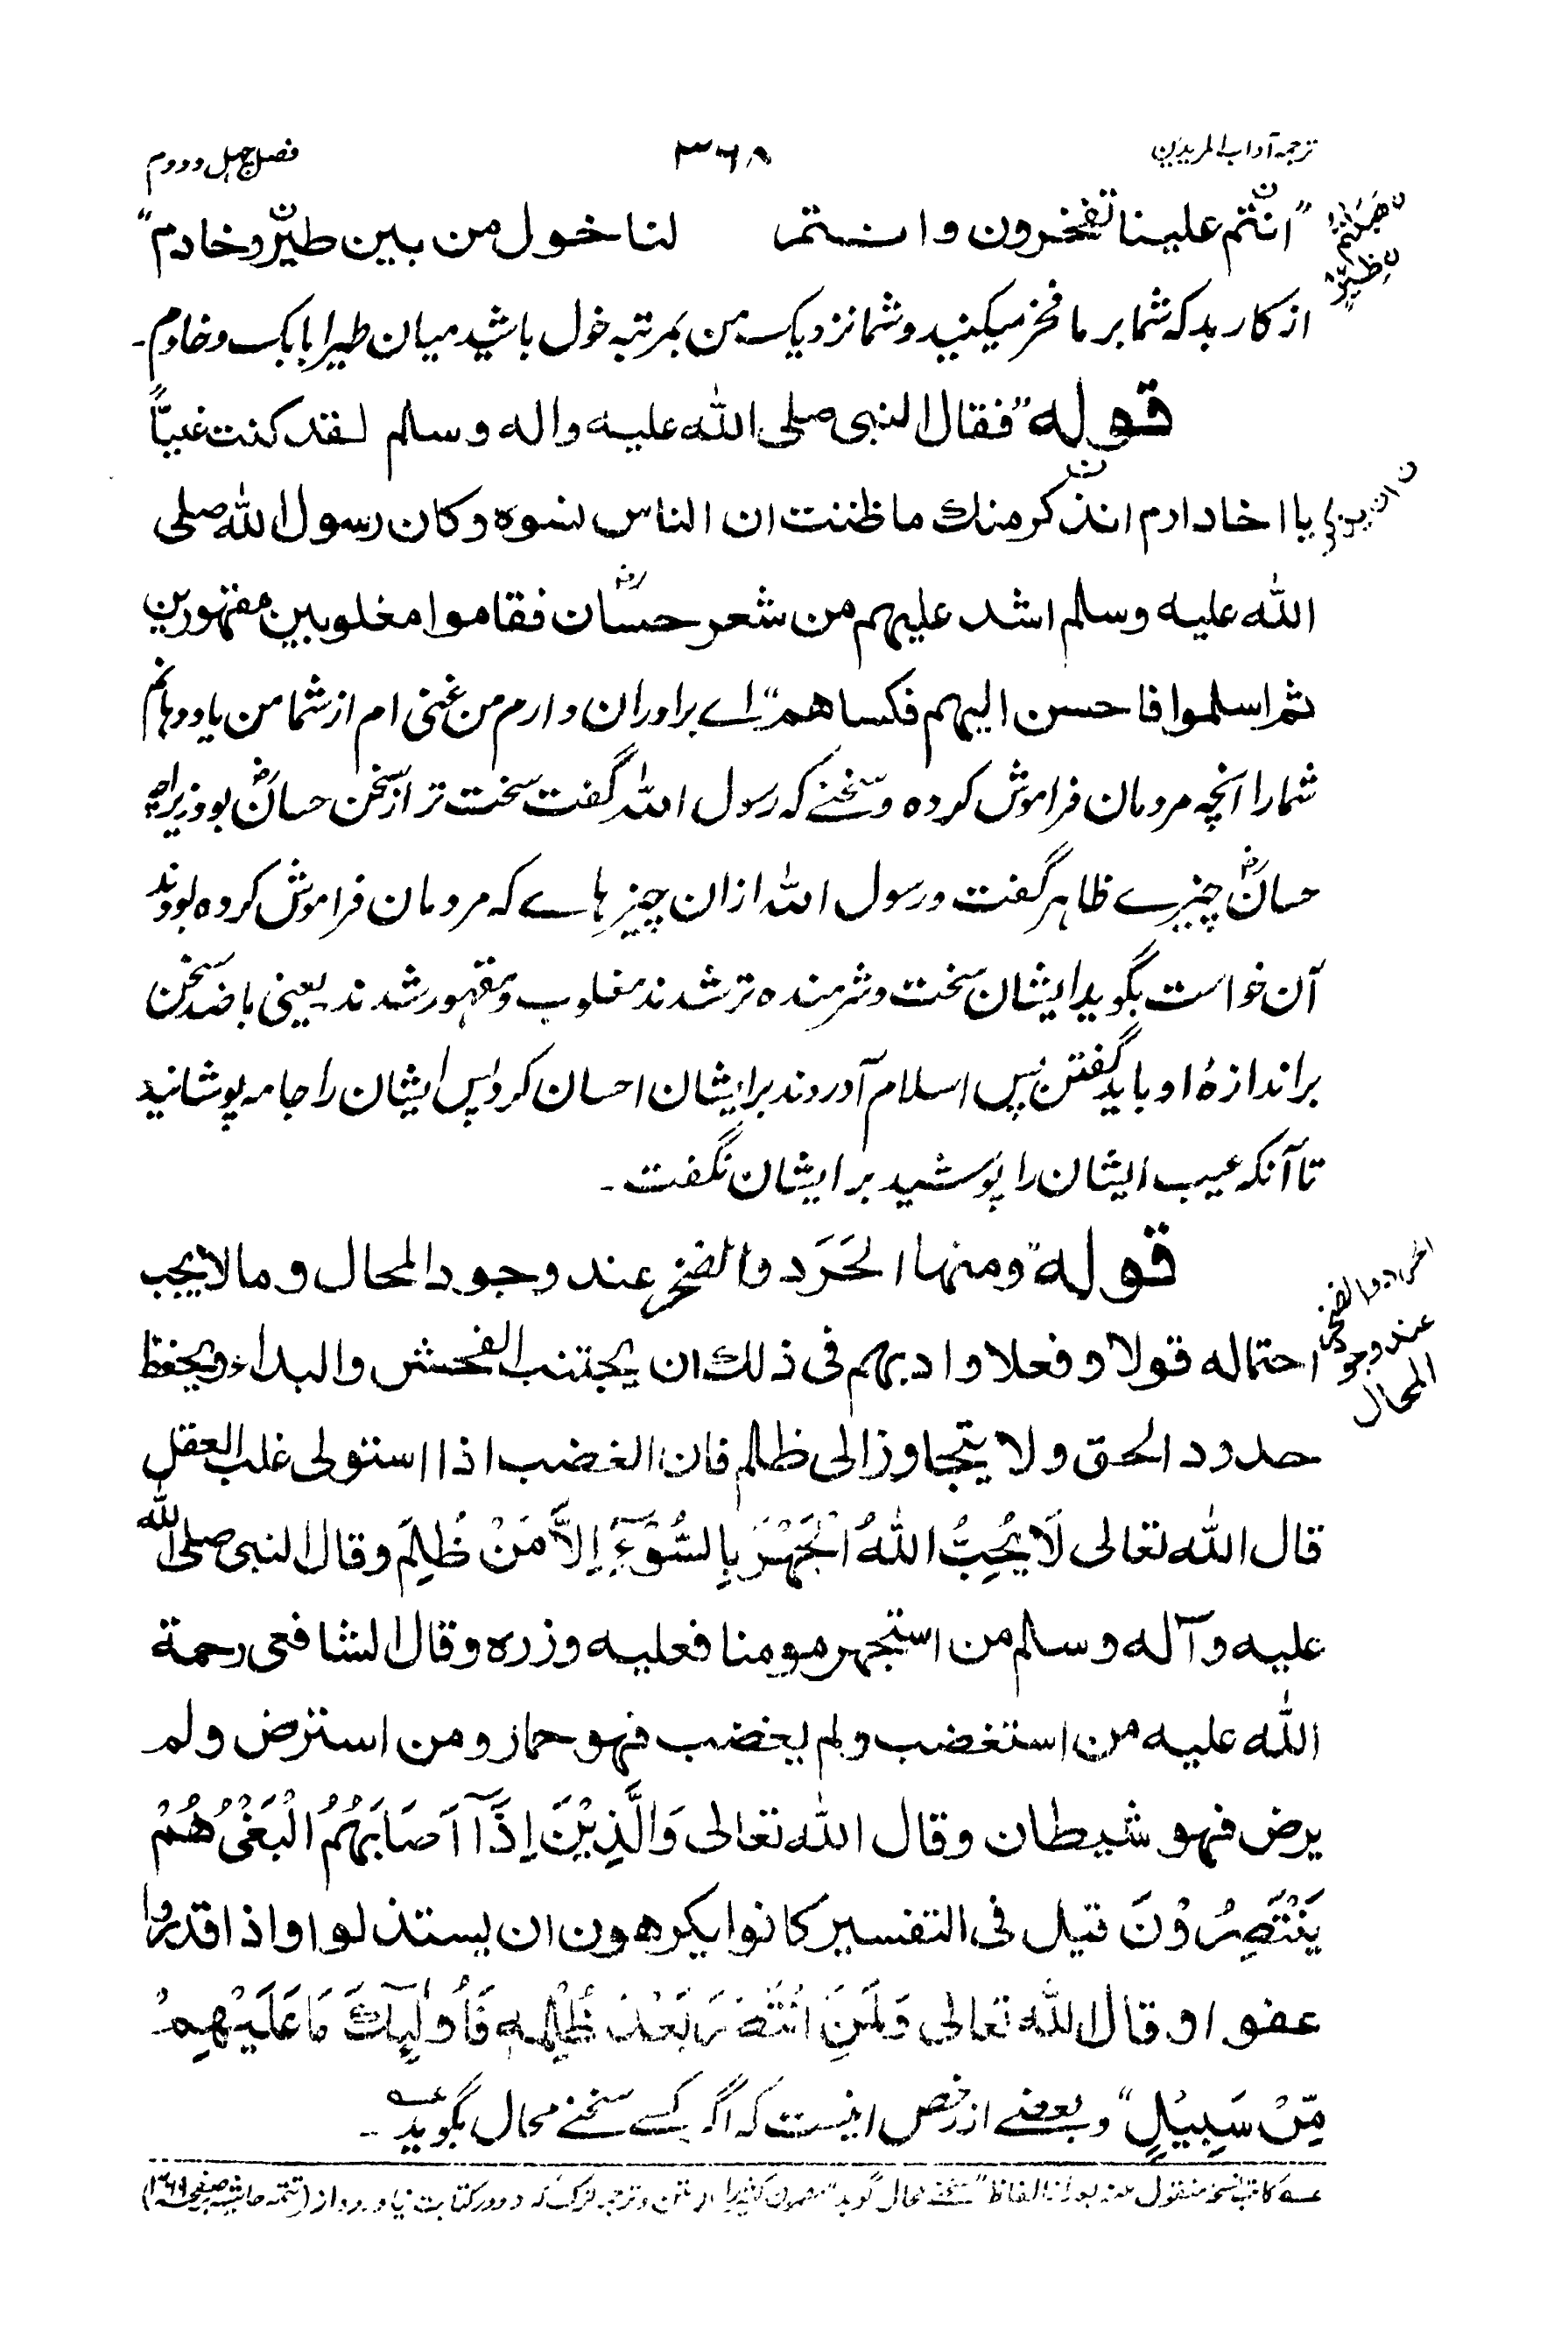 ترجمہ آداب المریدین
۳۶۸
فصل چہل و دوم
"انتم علينا تفخرون وانتم لنا خول من بين طیر و خادم"
از کار بد کہ شما بر ما فخر میکنید و شما نزدیک من بمرتبہ خول باشید میان طیر ابابک و خادم۔
قوله "فقال النبى صلى الله عليه واله وسلم لقد كنت غنيًّا
يا اخا دارم انذكر منك ما ظننت ان الناس نسوه وكان رسول الله صلى
الله عليه وسلم اشد عليهم من شعر حسان رض فقاموا مغلوبين مقهورين
ثم اسلموا فاحسن اليهم فكساهم" اے برادران دارم من غنی ام از شما من یاد دہانم
شما را آنچہ مردمان فراموش کردہ و سخنے کہ رسول اللہ گفت سخت تر از سخن حسان رض بود زیراچہ
حسان رض چیزے ظاہر گفت و رسول اللہ ازان چیز ہاے کہ مردمان فراموش کردہ بودند
آن خواست بگوید ایشان سخت و شرمندہ تر شدند مغلوب و مقہور شدند یعنی با ضد سخن
بر اندازۂ او باید گفتن پس اسلام آوردند بر ایشان احسان کرد پس ایشان را جامہ پوشانید
تا آنکہ عیب ایشان را پوشید بر ایشان نگفت۔
قوله "ومنها الحَرَد والضجر عند وجود المحال وما لا يجب
الحرد والضجر
عند وجود
المحال
احتماله قولا وفعلا وادبهم فى ذلك ان يجتنب الفحش والبداء ويحفظ
حدود الحق ولا يتجاوز الى ظلم فان الغضب اذا استولى غلب العقل
قال الله تعالى لَا يُحِبُّ اللهُ الْجَهْرَ بِالسُّوْٓءِ اِلَّا مَنْ ظُلِمَ وقال النبى صلى الله
عليه وآله وسلم من استجهر مومنا فعليه وزره وقال الشافعى رحمة
الله عليه من استغضب ولم يغضب فهو حمار ومن استرض ولم
يرض فهو شيطان وقال الله تعالى وَالَّذِيْنَ اِذَآ اَصَابَهُمُ الْبَغْىُ هُمْ
يَنْتَصِرُوْنَ قيل فى التفسير كانوا يكرهون ان يستذلوا واذا قدروا
عفوا وقال الله تعالى وَلَمَنِ انْتَصَرَ بَعْدَ ظُلْمِهٖ فَاُولٰٓئِكَ مَا عَلَيْهِمْ
مِّنْ سَبِيْلٍ" و بعضے از رخص اینست کہ اگر کسے سخنے محال بگوید عسہ۔
عسہ کاتب نسخہ منقول عنہ بعد از الفاظ "سخنے محال گوید" را از متن و ترجمہ ترک کرد و در کتابت نیاورد و از (تتمہ حاشیہ بر صفحہ ۳۶۹)